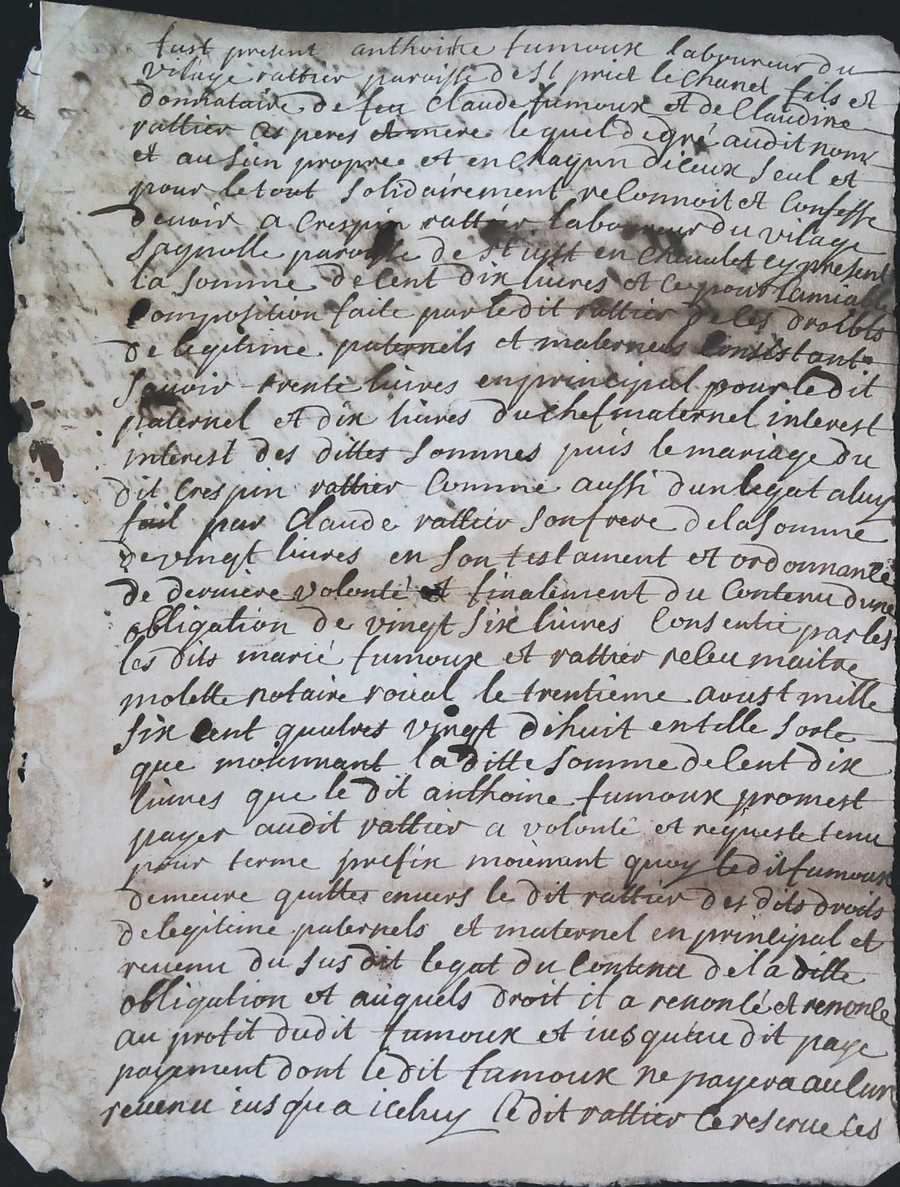 fust present anthoine fumoux laboureur du
vilage rattier paroisse de st priet le Chanet fils et
donnataire de feu Claude fumoux et de Claudine
rattier ces peres et mere lequel de gré audit nom
et au sien propre et en Chaqun diceux seul et
pour le tout solidairement reConnoit et Confesse
devoir a Crespin rattier laboureur du vilage
sagnolle paroisse de st iust en Chevalet cy present
la somme de Cent dix livres et Ce pour lamiable
Composition faite par le dit rattier de Ces droibts
de legitime paternels et maternels Consistant
sauoir trente livres en principal pour le dit
paternel et dix livres du chef maternel interest
interest des dittes sommes puis le mariage du
dit Crespin rattier Comme aussi dun legat a luy
fait par Claude rattier son frere de la somme
de vingt livres en son testament et ordonnance
de derniere volonté et finalement du Contenu dune
obligation de vingt six livres Consentie par les
les dits marié fumoux et rattier releu maitre
molette notaire roial le trentieme aoust mille
six Cent quatres vingt dihuit en telle sorte
que moiennant la ditte somme de Cent dix
livres que le dit anthoine fumoux promest
payer audit rattier a volonté et requeste tenu
pour terme prefix moiement quoy le dit fumoux
demeure quitte enuers le dit rattier des dits droits
de legitime paternels et maternel en principal et
reuenu du susdit legat du Contenu de la ditte
obligation et auquels droit il a renonCé et renonCe
au profit dudit fumoux et iusqu'au dit paye
payement dont le dit fumoux ne payera aucun
reuenu iusque a iceluy le dit rattier Ce reserue ses